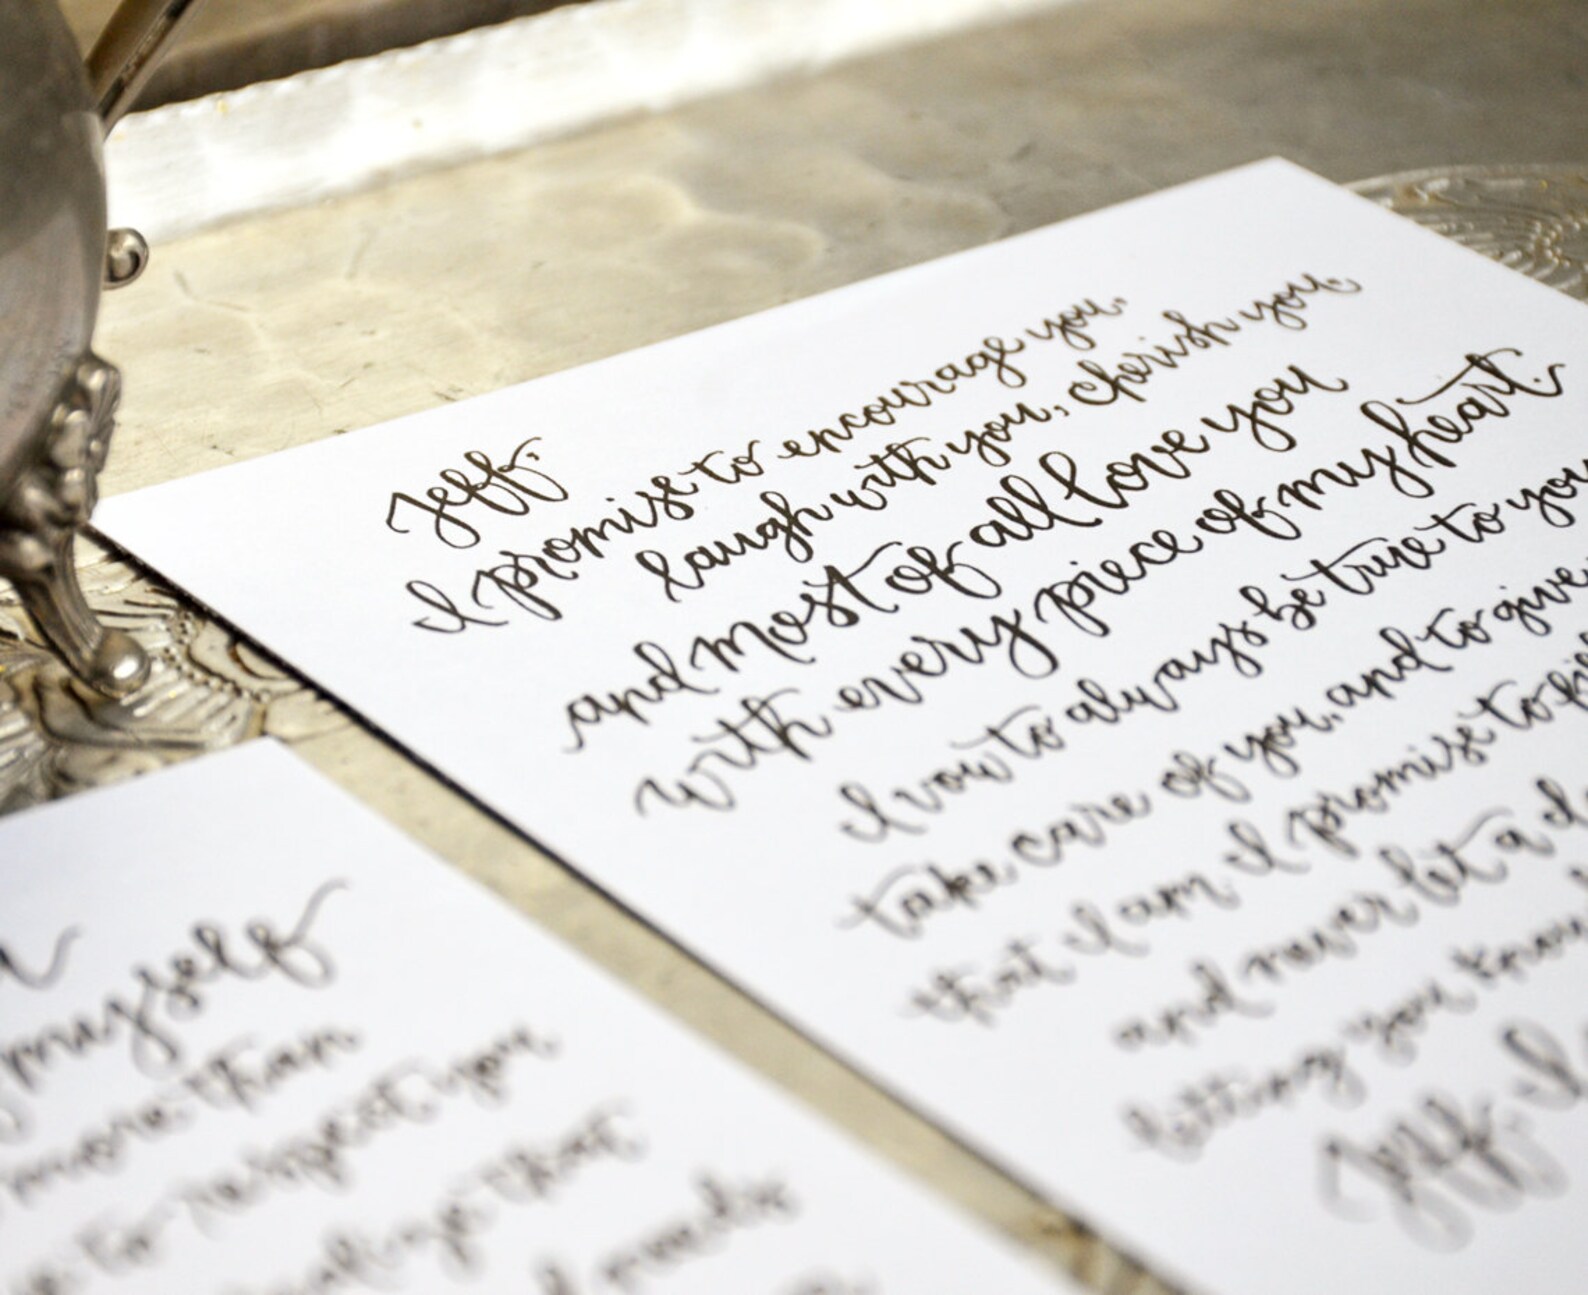 Jeff,
I promise to encourage you,
laugh with you, cherish you,
and most of all love you
with every piece of my heart.
I vow to always be true to you
take care of you, and to give
that I am I promise to
and never let a
letting you know
Jeff, I
myself
more than
to respect you
realize that
needs